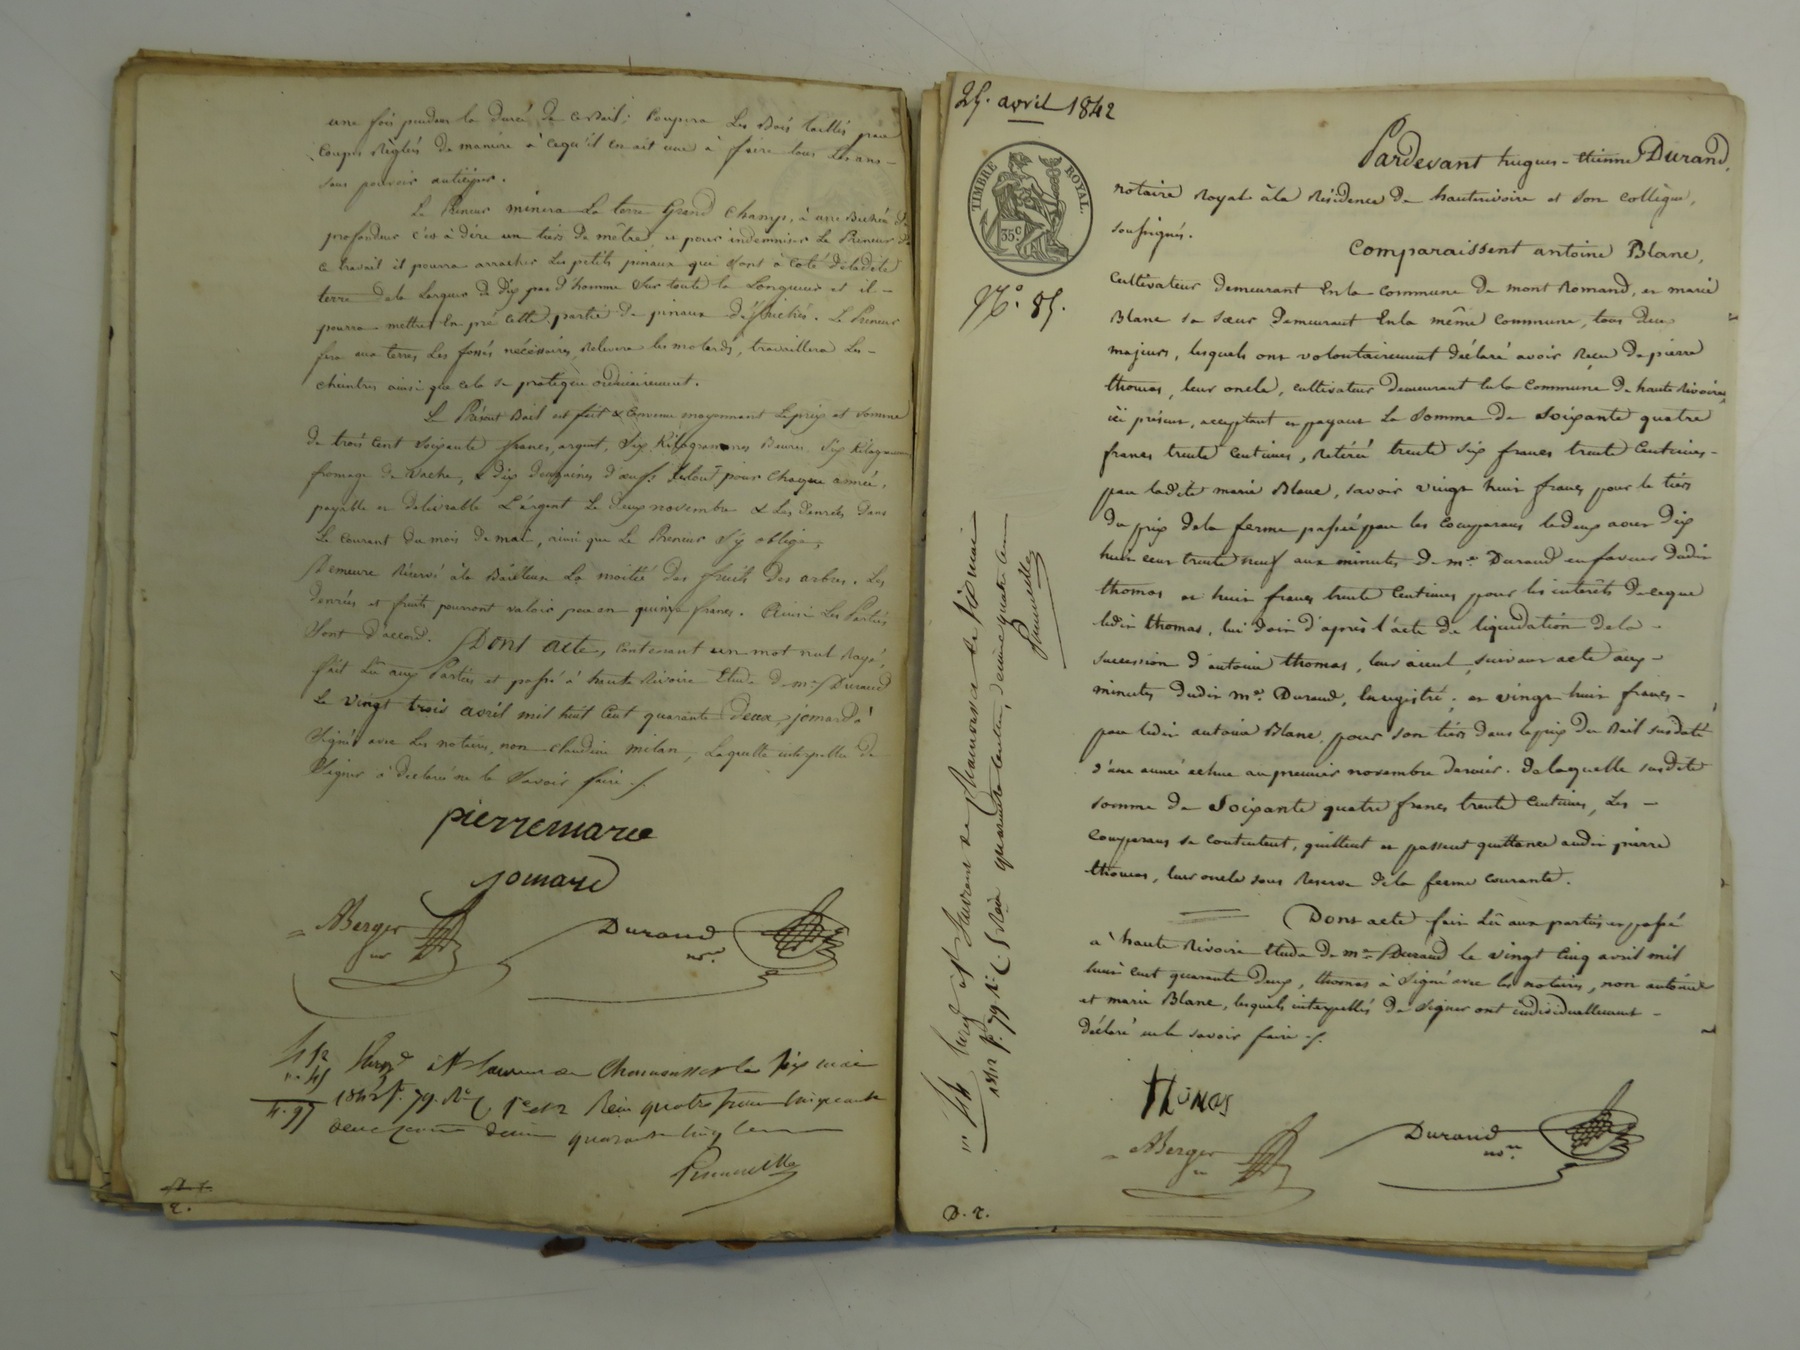 une fois pendant la durée de ce Bail; Coupera Les Bois taillés par
Coupes Réglées de manière à ce qu'il en ait une à faire tous Les ans-
sans pouvoir anticiper.
Le Preneur minera La terre Grand Champ, à une Bichée de
profondeur c'es à dire un tiers de mêtre et pour indemniser Le Preneur de
ce travail il pourra arracher Les petits pinaux qui sont à coté de ladite
terre de la Largeur de Dix pas d'homme Sur toute la Longueur et il-
pourra mettre En pré cette partie de pinaux défrichés. Le Preneur
fera aux terres Les fossés nécéssaires, Relevera les motards, travaillera Les-
cheintres ainsi que cela se pratique ordinairement.
Le Présent Bail est fait & Convenu moyennant Le prix et somme
de trois Cent Soixante francs, argent, Six Kilogrammes Beurre, Six Kilogrammes
fromage de Vache, & Dix douzaines d'œufs Letout pour Chaque année,
payable et delivrable L'argent Le deux novembre & Les denrées Dans
Le Courant du mois de mai, ainsi que Le Preneur S'y oblige,
Demeure Réservé à la Bailleuse La moitié Des fruits Des arbres. Les
denrées et fruits pourront valoir par an quinze francs. Ainsi Les Parties
Sont D'accord. Dont acte, Contenant un mot nul Rayé,
fait Lû aux Parties et passé à haute Rivoire Etude De me Durand
Le vingt trois avril mil huit Cent quarante deux, jomard à
Signé avec Les notaires, non claudine milan, Laquelle interpellée de
Signer à déclaré ne le Savoir faire ./.
pierremarie
jomard
ABerger
nre
Durand
nore
4.52
" 45
4.97
Enregé à St Laurent de Chamousset le Six mai
1842 fo. 79. Ro C 1re et 2 Reçu quatre francs Cinquante
deux centimes décime quarante cinq cen
Pernerelle
2.
25. avril 1842
TIMBRE ROYAL.
35c
No. 85.
Pardevant hugues-étienne Durand,
notaire Royal à la Résidence De hauterivoire et son Collègue,
soussignés.
Comparaissent antoine Blanc,
Cultivateur demeurant En la commune De mont Romand, et marie
Blanc sa sœur Demeurant En la même Commune, tous deux
majeurs, lesquels ont volontairement déclaré avoir Reçu de pierre
thomas, leur oncle, cultivateur demeurant En la Commune De haute Rivoire,
ici présent, acceptant et payant La Somme De Soixante quatre
francs trente Centimes, Retirée trente Six francs trente Centimes-
par ladite marie Blanc, savoir vingt huit francs pour le tiers
du prix de la ferme passée par les comparans le deux aout Dix
huit cent trente neuf aux minutes De me Durand en faveur dudit
thomas et huit francs trente Centimes pour les interêts de ce que
ledit thomas, lui doit d'après l'acte De liquidation de la-
succession d'antoine thomas, leur aieul, suivant acte aux-
minutes dudit me Durand, Enregistré; et vingt huit francs-
par ledit antoine Blanc, pour son tiers dans le prix du Bail susdaté
d'une année echue au premier novembre dernier. De laquelle susdite
somme De Soixante quatre francs trente Centimes, Les-
comparans se contentent, quittent et passent quittance audit pierre
thomas, leur oncle sous Reserve De la ferme courante.
Dont acte fait Lû aux parties et passé
a haute Rivoire Etude De me Durand le vingt Cinq avril mil
huit cent quarante deux, thomas à Signé avec les notaires, non antoine
et marie Blanc, lesquels interpellés De Signer ont individuellement-
déclaré ne le savoir faire ./.
thomas
ABerger
nre
Durand
nore
D. 2.
Enregé à St Laurent de Chamousset le six mai
1842 fo. 79 Ro C. 5 Reçu quarante centimes, décime quatre cen
Pernerelle